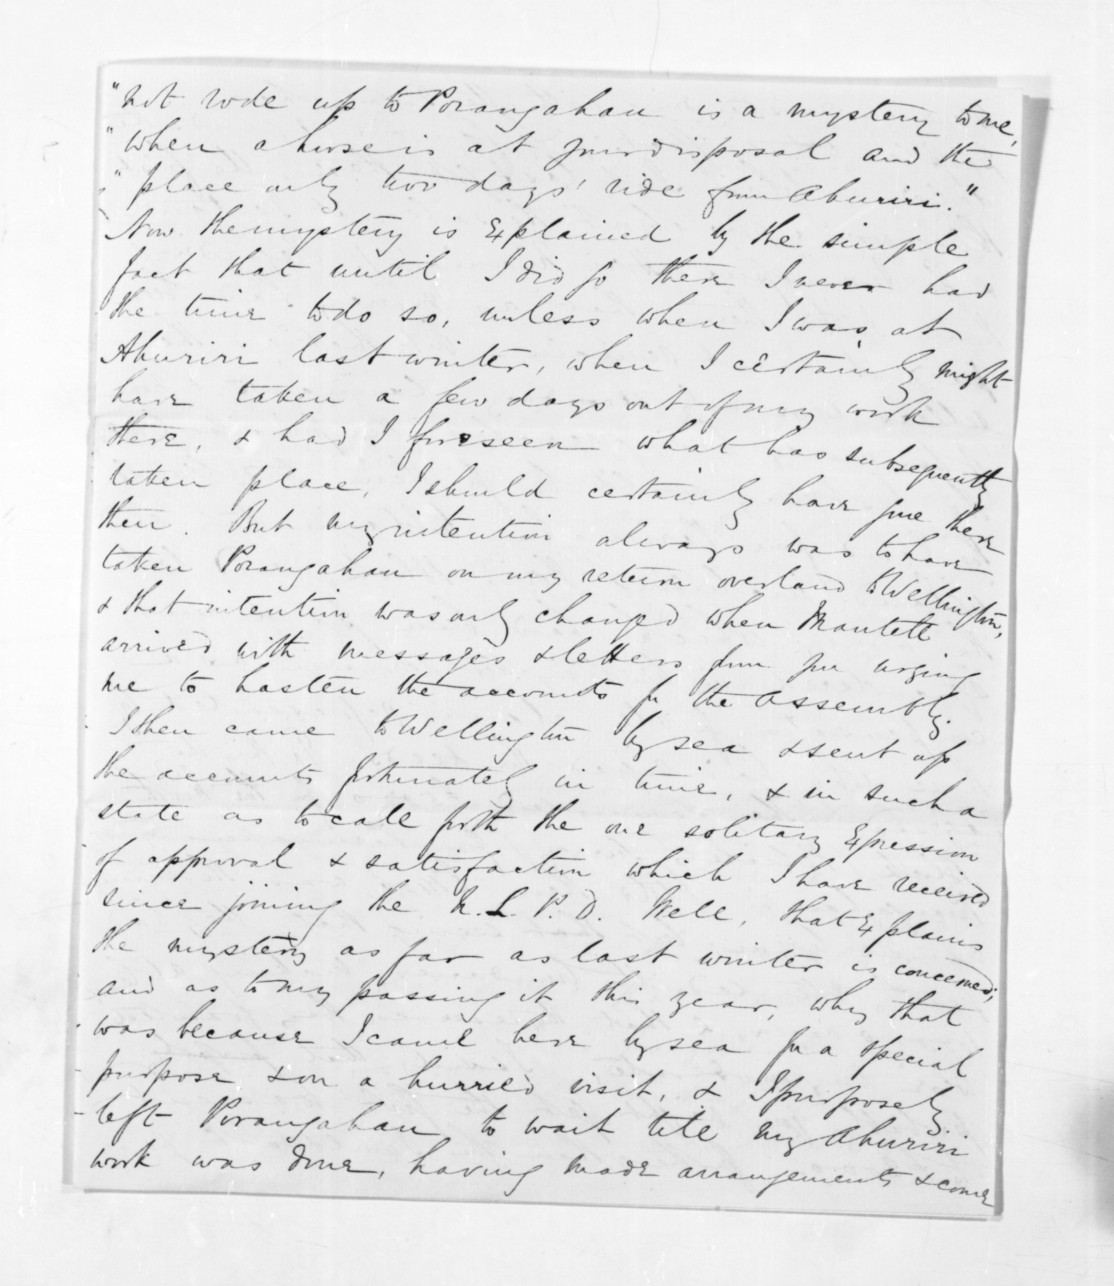 "not rode up to Porangahau is a mystery to me,
"when a horse is at your disposal and the
"place only two days' ride from Ahuriri."
Now the mystery is explained by the simple
fact that until I did go there I never had
the time to do so, unless when I was at
Ahuriri last winter, when I certainly might
have taken a few days out of my work
there, & had I foreseen what has subsequently
taken place, I should certainly have gone there
then. But my intention always was to have
taken Porangahau on my return overland to Wellington,
& that intention was only changed when Mantell
arrived with messages & letters from you urging
me to hasten the accounts for the Assembly.
I then came to Wellington by sea & sent up
the accounts fortunately in time, & in such a
state as to call forth the one solitary expression
of approval & satisfaction which I have received
since joining the N. L. P. D. Well, that explains
the mystery as far as last winter is concerned;
and as to my passing it this year, why that
was because I came here by sea for a special
purpose & on a hurried visit, & I purposely
left Porangahau to wait till my Ahuriri
work was done, having made arrangements & come